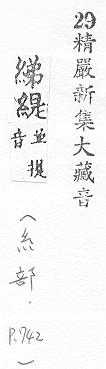 29精嚴新集大藏音
綈緹
並提
音
（糸部．P.742）